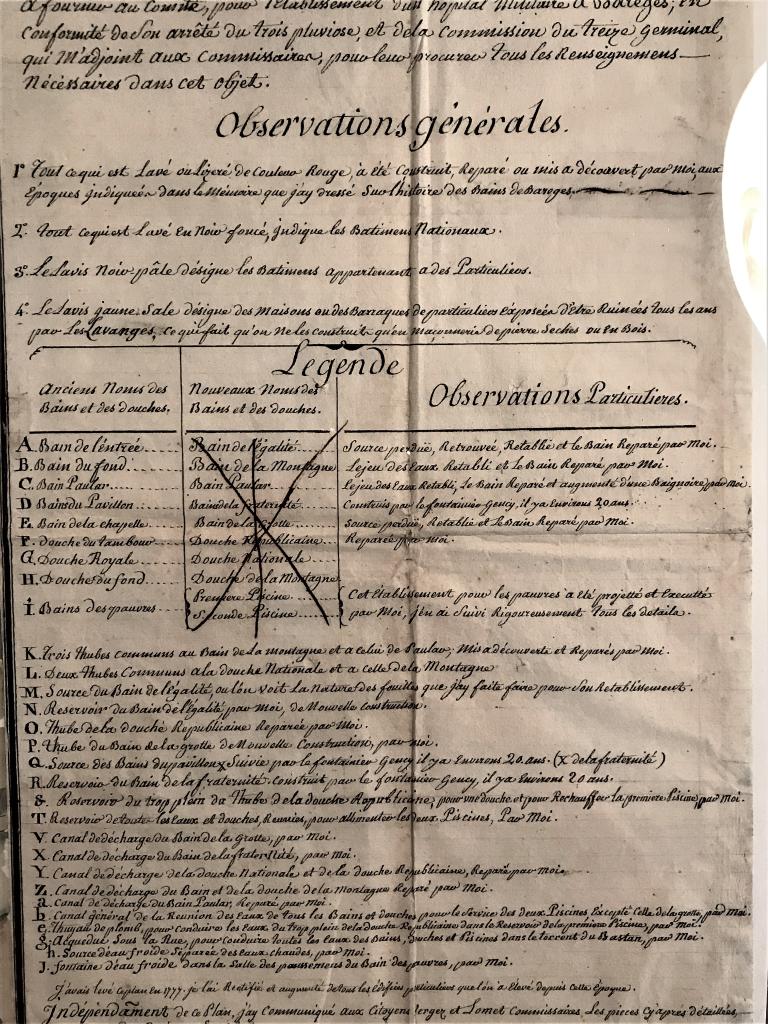 a fournir au Comité, pour l'Etablissement d'un hopital Militaire a Bareges; en
Conformité de Son arrété du trois pluviose, et de la Commission du treize germinal,
qui M'adjoint aux Commissaires, pour leur procurer tous les Renseignemens
Nécéssaires dans cet objet.
Observations générales.
1º Tout ce qui est Lavé ou Lizeré de Couleur Rouge, à été Construit, Reparé ou mis a découvert par Moi, aux
Epoques jndiquées dans le Mémoire que j'ay dressé Sur l'histoire des Bains de Bareges.
2º Tout ce qui est Lavé En Noir foncé, jndique les Batimens Nationaux.
3º Le Lavis Noir pâle désigne les Batimens appartenant a des Particuliers.
4º Le Lavis jaune Sale désigne des Maisons ou des Barraques de particuliers Exposées d'Etre Ruinées tous les ans
par Les Lavanges, ce qui fait qu'on Ne les Construit qu'en Maçonnerie de pierre Seches ou En Bois.
Légende
Anciens Noms des Bains et des douches.
Nouveaux Noms des Bains et des douches.
Observations Particulieres.
A. Bain de l'entrée..... Bain de l'égalité..... Source perdüe, Retrouvée, Retablie et le Bain Reparé par Moi.
B. Bain du fond..... Bains de la Montagne Le jeu des Eaux Retabli et Le Bain Reparé par Moi.
C. Bain Paular..... Bain Paular..... Le jeu des Eaux Retabli, Le Bain Reparé et augmenté d'une Baignoire, par Moi.
D Bains du Pavillon..... Bains de la fraternité..... Construits par le fontainier Gency, il y a Environs 20 ans.
E. Bain de la chapelle..... Bain de la Grotte..... Source perdüe, Retablie et Le Bain Reparé par Moi.
F. douche du tambour..... Douche Républicaine..... Reparée par Moi.
G. Douche Royale..... Douche Nationale.....
H. Douche du fond..... Douche de la Montagne
i. Bains des pauvres..... Premiere Piscine..... Cet Etablissement pour les pauvres a été projetté et Executté
Seconde Piscine..... par Moi, j'en ai Suivi Rigoureusement tous les details.
K. Trois Thubes Communs au Bain de La montagne et a celui de Paular; Mis a découverte et Reparés par Moi.
L. Deux Thubes Communs a la douche Nationale et a Celle de la Montagne
M. Source du Bain de l'égalité, ou l'on voit La Nature des fouilles que j'ay faite faire pour Son Retablissement.
N. Reservoir du Bain de l'égalité par Moi, de Nouvelle Construction.
O. Thube de la douche Republicaine Reparée par Moi.
P. Thube du Bain de la grotte de Nouvelle Construction, par Moi.
Q. Source des Bains du pavillon X Suivie par le fontainier Gency il y a Environs 20. ans. (X de la fraternité)
R. Reservoir du Bain de la fraternité. Construit par le fontainier Gency, il y a Environs 20 ans.
S. Reservoir du trop plein du Thube de la douche Républicaine, pour une douche, et pour Rechauffer la premiere Piscine, par Moi.
T. Reservoir de toute les Eaux et douches, Reunies, pour allimenter les deux Piscines, Par Moi.
V. Canal de décharge du Bain de la Grotte, par Moi.
X. Canal de décharge du Bain de la fraternité, par Moi.
Y. Canal de décharge de la douche Nationale et de la douche Republicaine, Reparé par Moi.
Z. Canal de décharge du Bain et de la douche de la Montagne Reparé par Moi.
a. Canal de décharge du Bain Paular, Reparé par Moi.
b. Canal général de la Reunion des Eaux de tous les Bains et douches pour le Service des deux Piscines, Excepté Celle de la grotte, par Moi.
e. Thuyau de plomb, pour Conduire les Eaux du trop plein de la douche Republicaine dans le Reservoir de la premiere Piscine, par Moi.
g. Acqueduc Sous la Rue, pour Conduire toutes les Eaux des Bains, Douches et Piscines dans le torrent du Bastan, par Moi.
h. Source d'eau froide Séparée des Eaux chaudes, par Moi.
J. fontaine d'eau froide dans la Salle des pansemens du Bain des pauvres, par Moi.
J'avais levé ce plan En 1777. je l'ai Rectifié et augmenté de tous les Edifices particuliers que l'on a Elevé depuis Cette Epoque.
Indépendament de ce Plan, j'ay Communiqué aux Citoyens Berger et Lomet Commissaires, Les pieces Cy après détaillées,